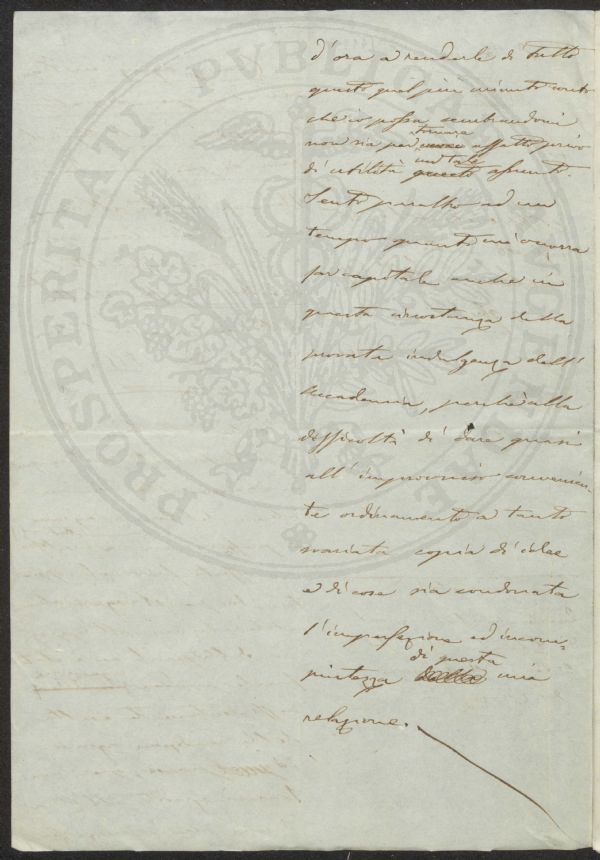 d'ora a renderle di tutto
questo quel più minuto conto
che io possa, sembrandomi
non sia per tornare affatto privo
di utilità un tale assunto.
Sento peraltro ad un
tempo quanto mi occorra
far capitale anche in
questa circostanza della
provata indulgenza dell'
Accademia, perchè alla
difficoltà di dare quasi
all'improvviso convenien-
te ordinamento a tanto
svariata copia di idee
e di cose sia condonata
l'imperfezione ed incom-
piutezza di questa mia
relazione.
PROSPERITATI PVBLICAE